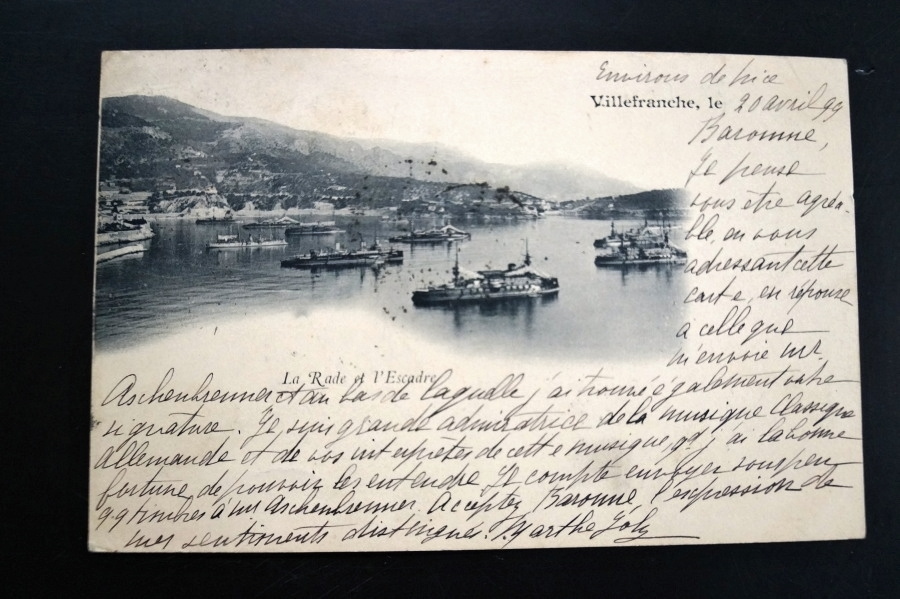 Environs de Nice
Villefranche, le 20 avril 99
Baronne,
Je pense
vous être agréa-
ble, en vous
adressant cette
carte, en réponse
a celle que
m'envoie mr.
La Rade et l'Escadre
Aschenbrenner et au bas de laquelle j'ai trouvé également votre
signature. Je suis grande admiratrice de la musique Classique
Allemande et de vos interprètes de cette musique, qd j'ai la bonne
fortune de pouvoir les entendre. Je compte envoyer sous peu
timbres à mr Aschenbrenner. Acceptez Baronne, l'expression de
mes sentiments distingués. Marthe Joly